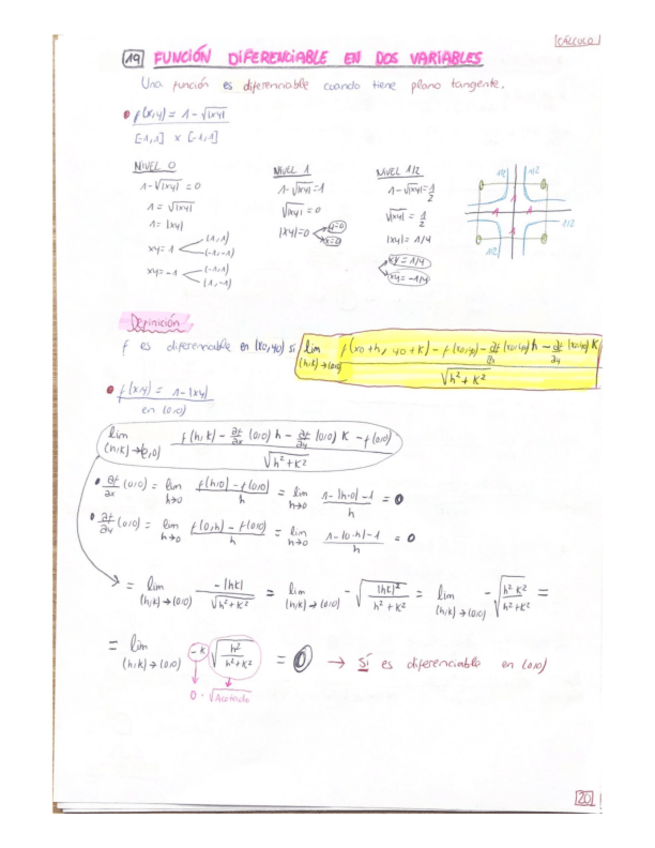 CÁLCULO
19 FUNCIÓN DIFERENCIABLE EN DOS VARIABLES
Una función es diferenciable cuando tiene plano tangente.
• f(x,y) = 1 - √|xy|
[-1,1] x [-1,1]
NIVEL 0
1 - √|xy| = 0
1 = √|xy|
1 = |xy|
xy = 1 (1,1) (-1,-1)
xy = -1 (-1,1) (1,-1)
NIVEL 1
1 - √|xy| = 1
√|xy| = 0
|xy| = 0 y=0 x=0
NIVEL 1/2
1 - √|xy| = 1/2
√|xy| = 1/2
|xy| = 1/4
xy = 1/4
xy = -1/4
1/2 1/2
1
1 1
1/2
1
1/2
Definición
f es diferenciable en (x0,y0) si lim (h,k)→(0,0) f(x0+h, y0+k) - f(x0,y0) - ∂f/∂x (x0,y0) h - ∂f/∂y (x0,y0) k / √h²+k²
• f(x,y) = 1 - |xy|
en (0,0)
lim (h,k)→(0,0) f(h,k) - ∂f/∂x (0,0) h - ∂f/∂y (0,0) k - f(0,0) / √h²+k²
• ∂f/∂x (0,0) = lim h→0 f(h,0) - f(0,0) / h = lim h→0 1-|h·0|-1 / h = 0
• ∂f/∂y (0,0) = lim h→0 f(0,h) - f(0,0) / h = lim h→0 1-|0·h|-1 / h = 0
= lim (h,k)→(0,0) -|hk| / √h²+k² = lim (h,k)→(0,0) - √|hk|² / h²+k² = lim (h,k)→(0,0) - √h² k² / h²+k² =
= lim (h,k)→(0,0) -k √h² / h²+k² = 0 → SÍ es diferenciable en (0,0)
0 · √Acotado
20